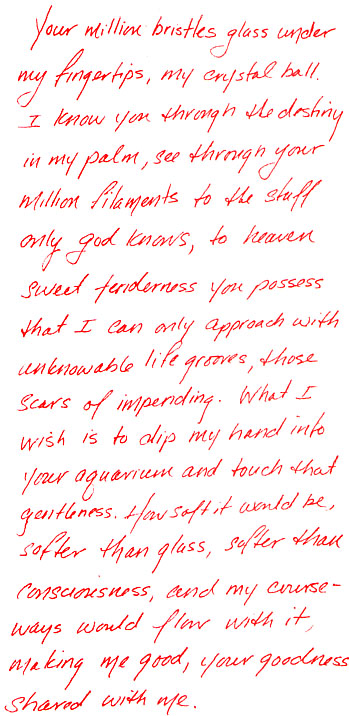 Your million bristles glass under
my fingertips, my crystal ball.
I know you through the destiny
in my palm, see through your
million filaments to the stuff
only god knows, to heaven
sweet tenderness you possess
that I can only approach with
unknowable life grooves, those
scars of impending. What I
wish is to dip my hand into
your aquarium and touch that
gentleness. How soft it would be,
softer than glass, softer than
consciousness, and my course-
ways would flow with it,
making me good, your goodness
shared with me.